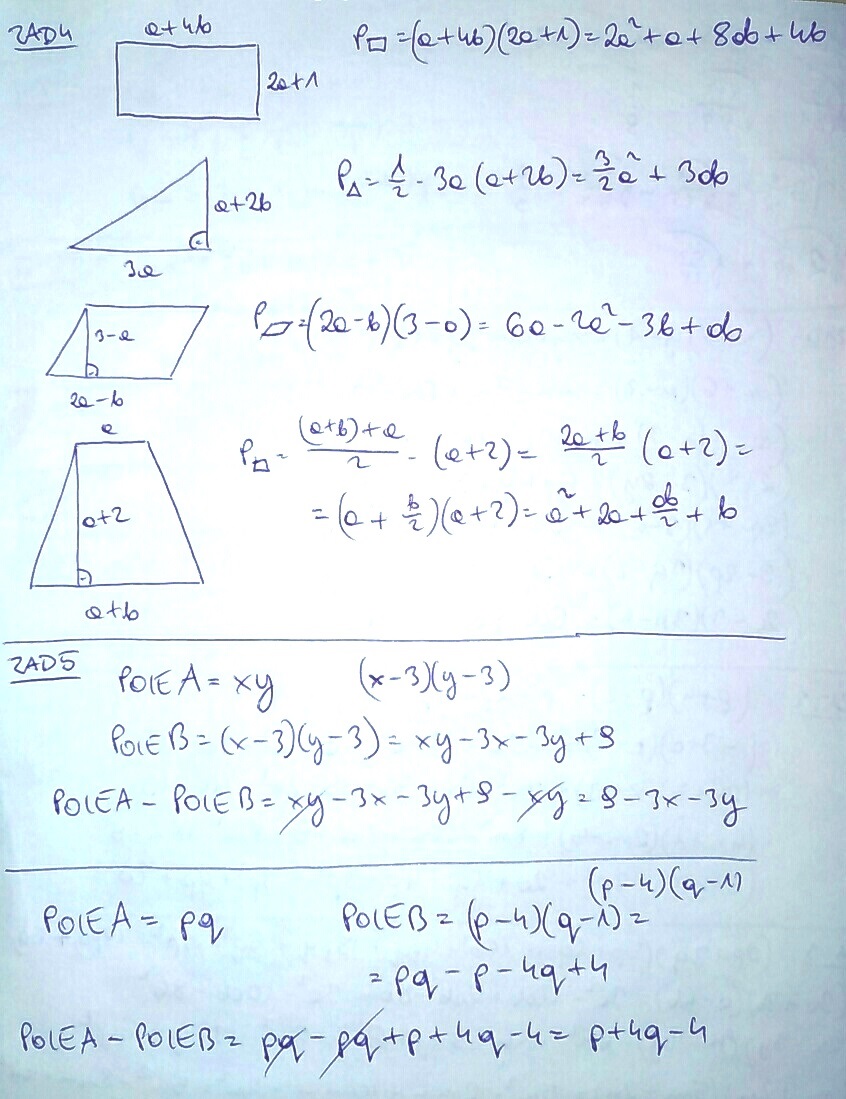 ZAD4
a+4b
2a+1
P▭ = (a+4b)(2a+1) = 2a² + a + 8ab + 4b
a+2b
3a
P△ = 1/2 · 3a (a+2b) = 3/2 a² + 3ab
3-a
2a-b
P▱ = (2a-b)(3-a) = 6a - 2a² - 3b + ab
a
a+2
a+b
P = (a+b)+a / 2 · (a+2) = 2a+b / 2 (a+2) =
= (a + b/2)(a+2) = a² + 2a + ab/2 + b
ZAD5
POLE A = xy (x-3)(y-3)
POLE B = (x-3)(y-3) = xy - 3x - 3y + 9
POLE A - POLE B = xy - 3x - 3y + 9 - xy = 9 - 3x - 3y
(p-4)(q-1)
POLE A = pq POLE B = (p-4)(q-1) =
= pq - p - 4q + 4
POLE A - POLE B = pq - pq + p + 4q - 4 = p + 4q - 4